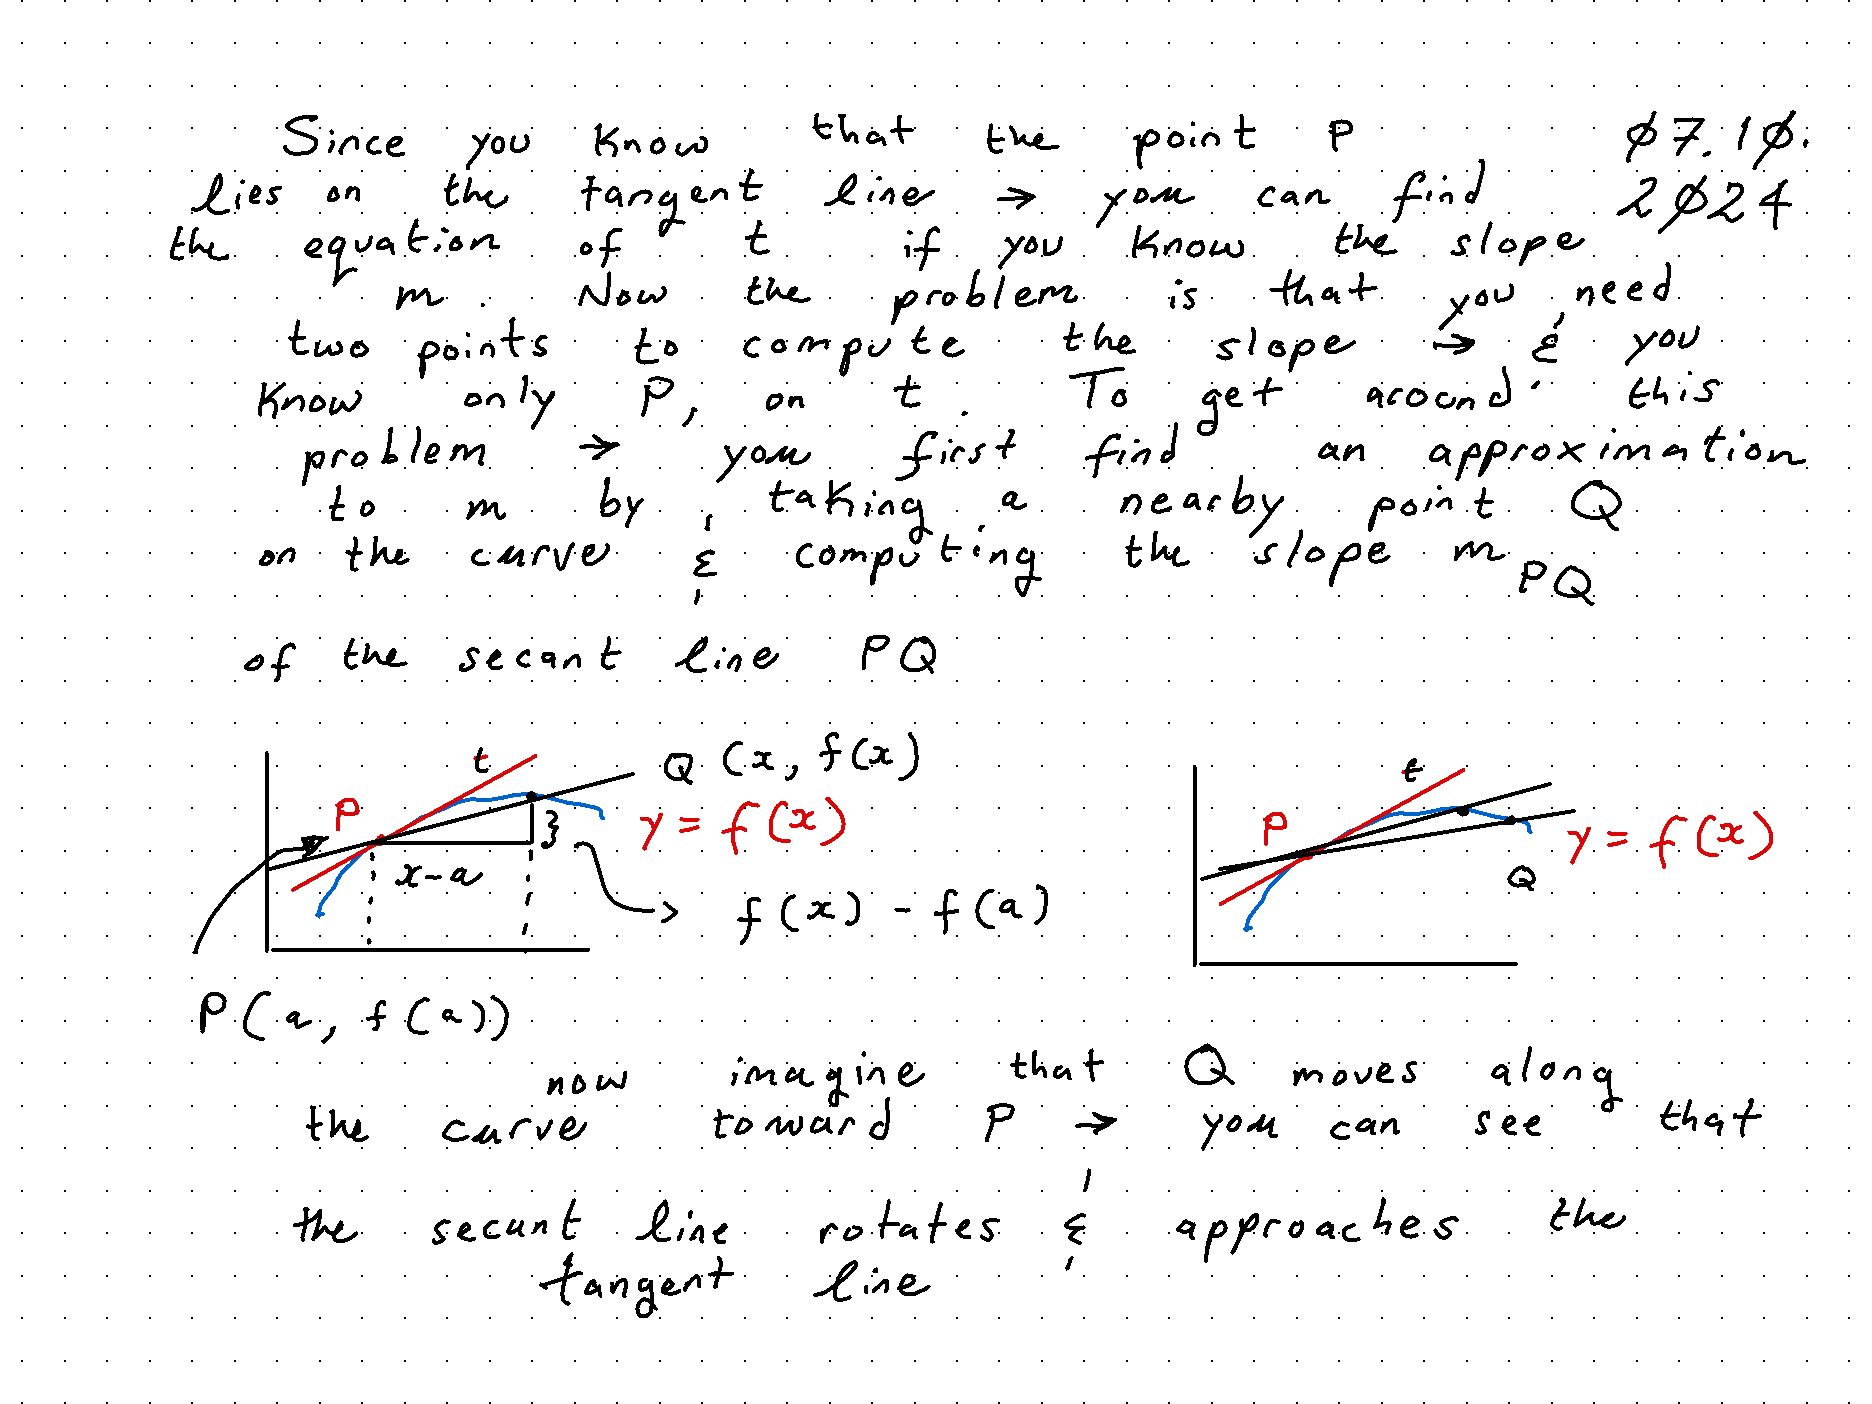 Since you know that the point P
07.10.
lies on the tangent line → you can find
2024
the equation of t if you know the slope
m. Now the problem is that you need
two points to compute the slope → & you
know only P, on t. To get around this
problem → you first find an approximation
to m by, taking a nearby point Q
on the curve & computing the slope m PQ
of the secant line PQ
t
Q (x, f(x)
P
y = f(x)
x-a
f(x) - f(a)
P(a, f(a))
t
P
y = f(x)
Q
now imagine that Q moves along
the curve toward P → you can see that
the secant line rotates & approaches the
tangent line